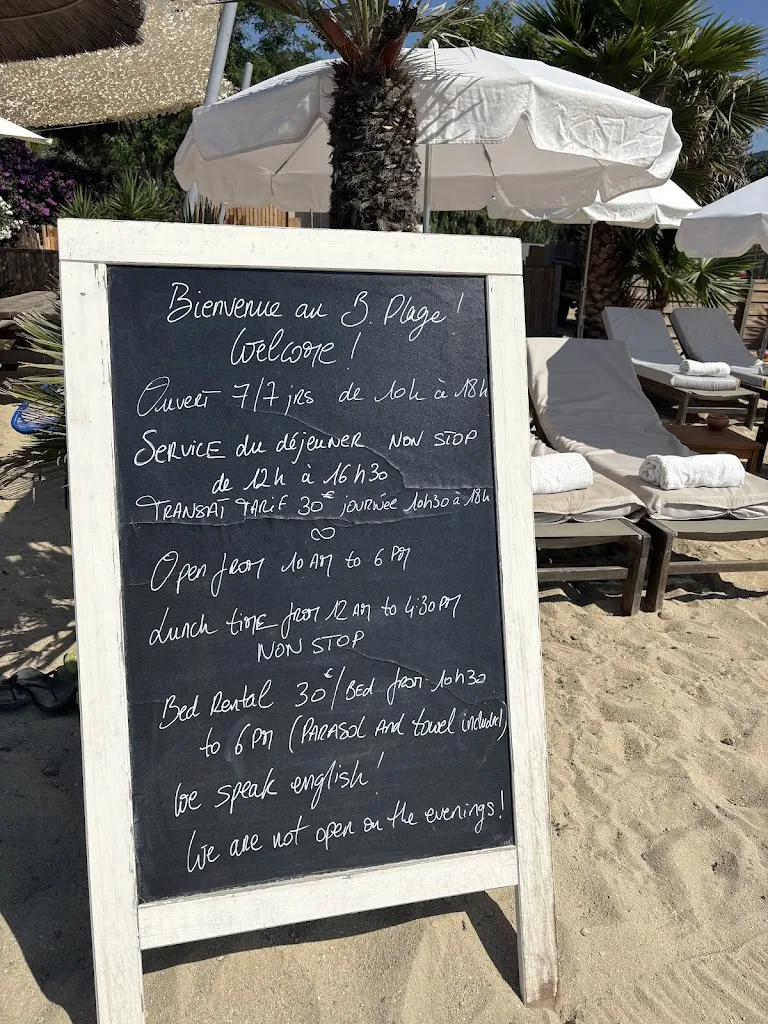 Bienvenue au B. Plage !
Welcome !
Ouvert 7/7 jrs de 10h à 18h
SERVICE du déjeuner NON STOP
de 12h à 16h30
TRANSAT TARIF 30€ journée 10h30 à 18h
∞
Open from 10 AM to 6 PM
Lunch time from 12 AM to 4:30 PM
NON STOP
Bed Rental 30€/BED from 10h30
to 6 PM (PARASOL AND towel included)
We speak english !
We are not open on the evenings !